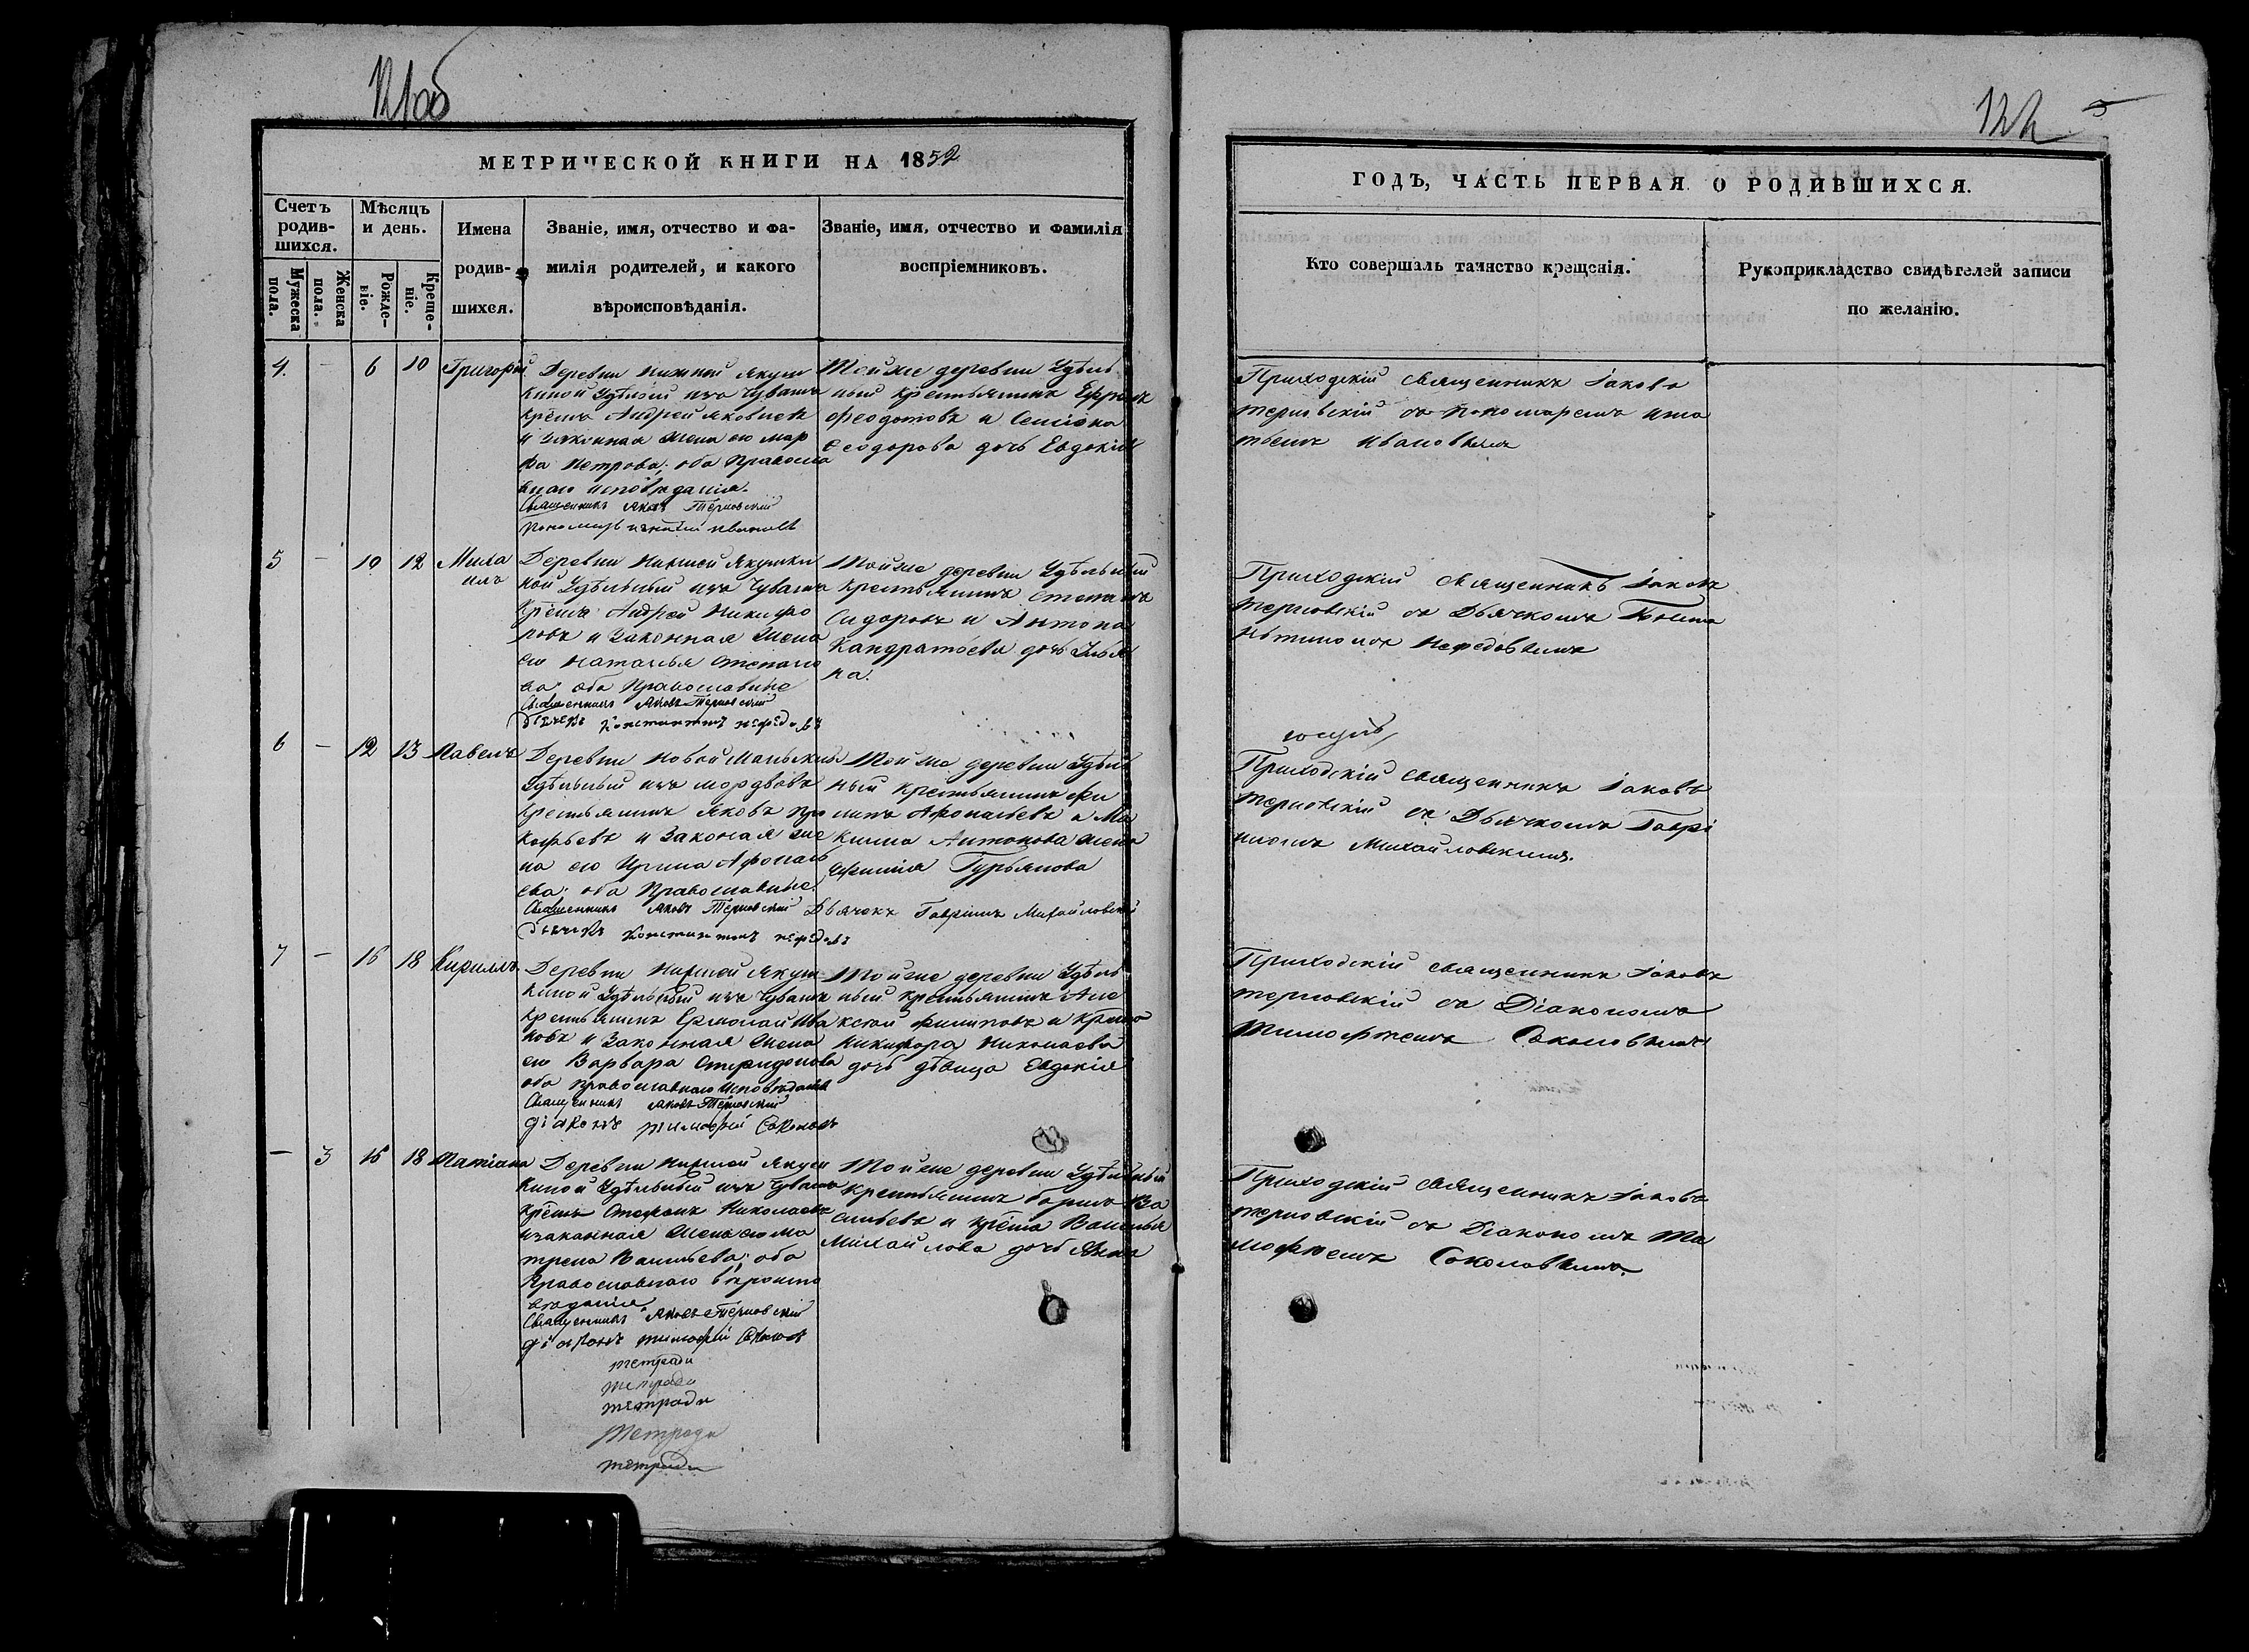 121об
МЕТРИЧЕСКОЙ КНИГИ НА 1852
Счетъ родив-шихся.
Мѣсяцъ и день.
Имена родив-шихся.
Званіе, имя, отчество и фа-
милія родителей, и какого
вѣроисповѣданія.
Званіе, имя, отчество и фамилія
воспріемниковъ.
Мужеска пола.
Женска пола.
Рожде-ніе.
Креще-ніе.
4. - 6 10 Григорій
Деревни Нижней Якуш
киной Удѣльный изъ Чувашъ
крестъ Андрей Яковлевъ
и законная жена его Мар
фа Петрова; оба Православ
наго исповѣданія.
Священникъ Яковъ Терновский
Пономарь Игнатій Ивановъ
Тойже деревни Удѣль
ный крестьянинъ Ефремъ
Феодотовъ и Семіона
Феодорова дочь Евдокія
5 - 10 12 Миха
илъ
Деревни Нижней Якушки
ной Удѣльный изъ Чувашъ
крестъ Андрей Никифо
ровъ и законная жена
его Наталья Степано
ва оба Православные
Священникъ Яковъ Терновский
дьячекъ Константинъ Нефедовъ
Тойже деревни Удѣльный
крестьянинъ Степанъ
Сидоровъ и Антона
Кандратьева дочь Улья
на.
6 - 12 13 Павелъ
Деревни Новой Маньскиной
Удѣльный изъ мордвовъ
крестьянинъ Яковъ Про
кофьевъ и законая же
на его Ирина Афонась
ева; оба Православные.
Священникъ Яковъ Терновский
дьячекъ Константинъ Нефедовъ
Тойже деревни Удѣль
ный крестьянинъ Фи
липъ Афонасьевъ и Ма
Антонова жена
Гурьянова
Дьячекъ Гавріилъ Михайловский
7 - 16 18 Кириллъ.
Деревни Нижней Якуш
киной Удѣльный изъ Чувашъ
крестьянинъ Ермолай Ива
новъ и законная жена
его Варвара Спиридонова
оба православнаго исповѣданія
Священникъ Яковъ Терновский
діаконъ Тимофей Соколовъ
Тойже деревни Удѣль
ный крестьянинъ Але
ксей Филиповъ и крест
Никифора Николаева
дочь дѣвица Евдокія
- 3 16 18 Татіана
Деревни Нижней Якуш
киной Удѣльный изъ Чувашъ
крестъ Стефанъ Николаевъ
изаконная жена его Ма
трена Васильева; оба
Православнаго вѣроиспо
вѣданія
Священникъ Яковъ Терновский
діаконъ Тимофей Соколовъ
Тойже деревни Удѣльный
крестьянинъ Ва
сильевъ и Василья
Михайлова дочь Анна
тетради
тетради
тетради
тетради
тетради
122
ГОДЪ, ЧАСТЬ ПЕРВАЯ О РОДИВШИХСЯ.
Кто совершалъ таинство крещенія.
Рукоприкладство свидѣтелей записи
по желанію.
Приходскій священникъ Іаковъ
Терновскій съ пономаремъ Игна
тьемъ Ивановымъ
Приходскій священникъ Іаковъ
Терновскій съ Дьячкомъ Конста
нтиномъ Нефедовымъ
Приходскій священникъ Іаковъ
Терновскій съ Дьячкомъ Гаврі
иломъ Михайловскимъ.
Приходскій священникъ Іаковъ
Терновскій съ Діакономъ
Тимофеемъ Соколовымъ
Приходскій священникъ Іаковъ
Терновскій съ Діакономъ Ти
мофеемъ Соколовымъ.